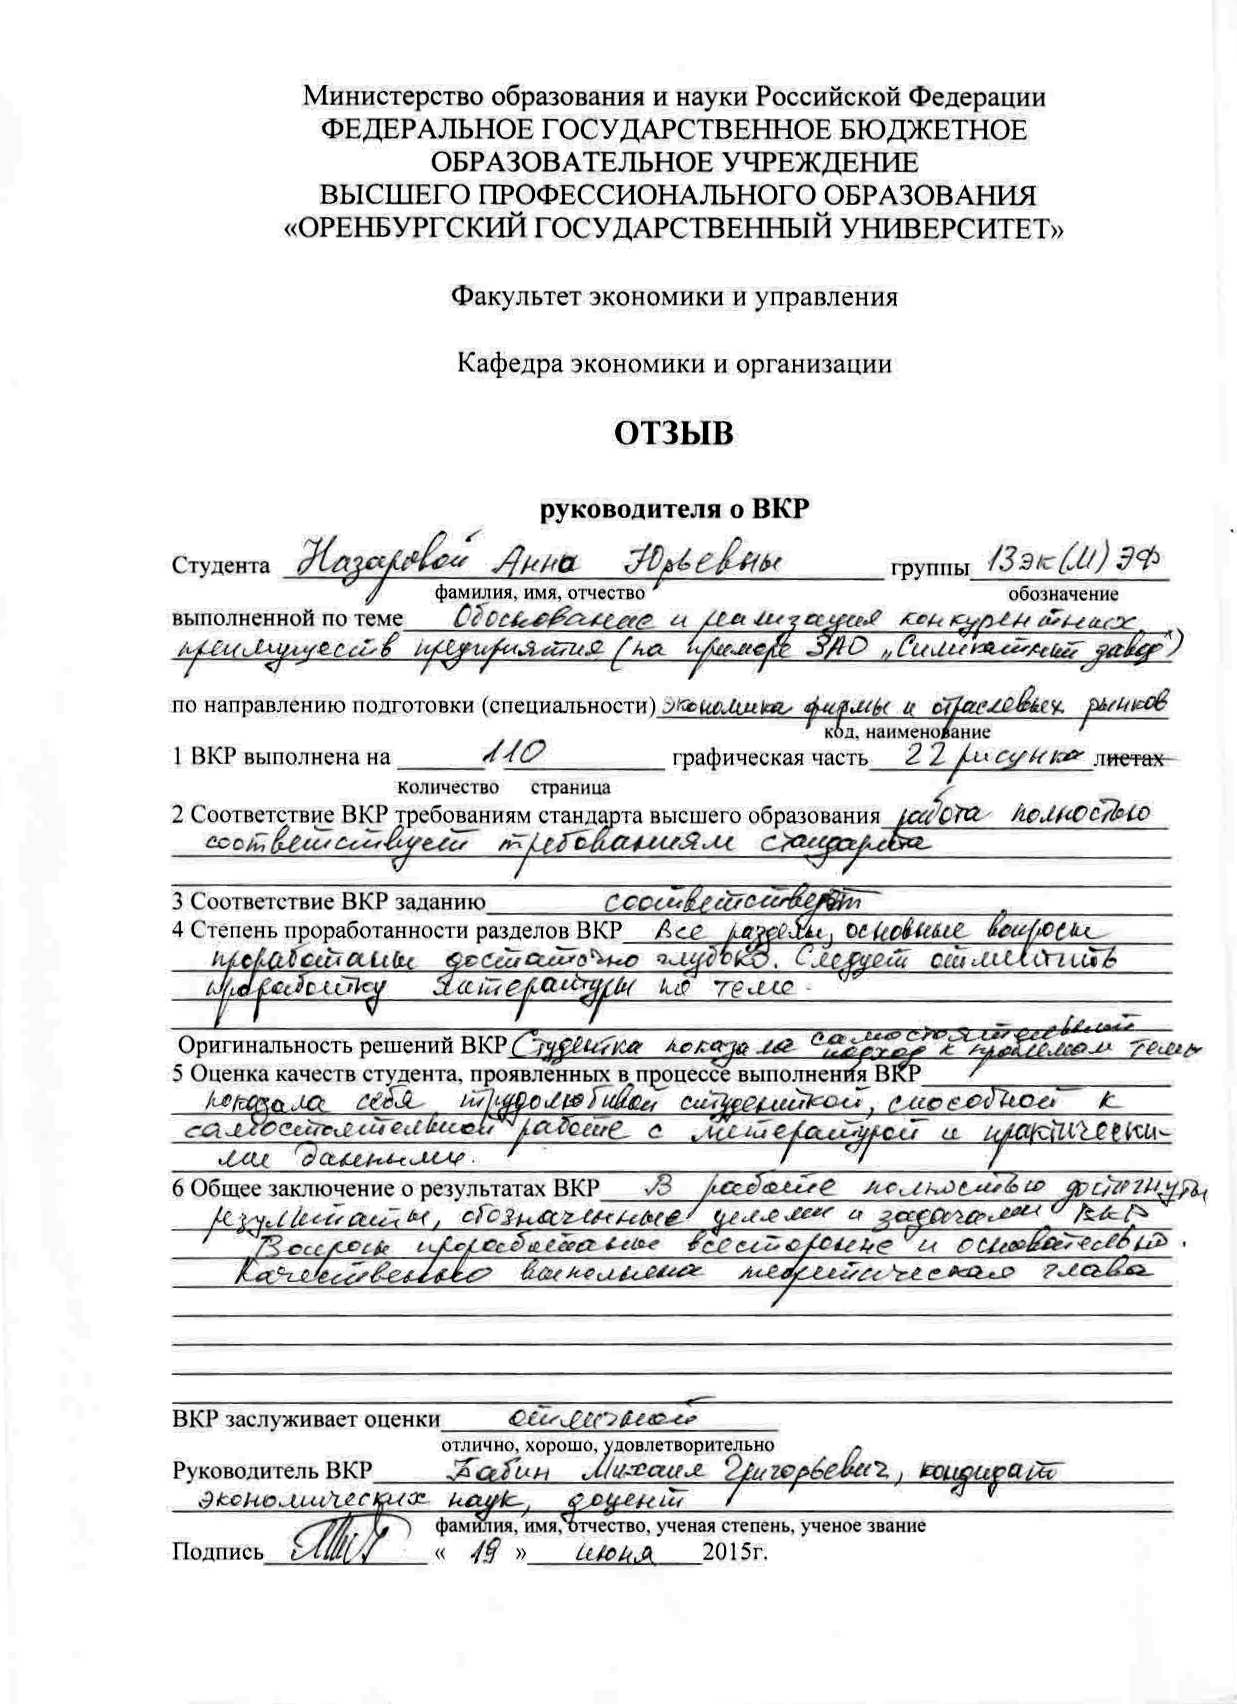 Министерство образования и науки Российской Федерации
ФЕДЕРАЛЬНОЕ ГОСУДАРСТВЕННОЕ БЮДЖЕТНОЕ
ОБРАЗОВАТЕЛЬНОЕ УЧРЕЖДЕНИЕ
ВЫСШЕГО ПРОФЕССИОНАЛЬНОГО ОБРАЗОВАНИЯ
«ОРЕНБУРГСКИЙ ГОСУДАРСТВЕННЫЙ УНИВЕРСИТЕТ»
Факультет экономики и управления
Кафедра экономики и организации
ОТЗЫВ
руководителя о ВКР
Студента Назаровой Анна Юрьевны группы 13эк(м)ЭФ
фамилия, имя, отчество обозначение
выполненной по теме Обоснование и реализация конкурентных
преимуществ предприятия (на примере ЗАО „Силикатный завод")
по направлению подготовки (специальности) экономика фирмы и отраслевых рынков
код, наименование
1 ВКР выполнена на 110 графическая часть 22 рисунка листах
Количество страница
2 Соответствие ВКР требованиям стандарта высшего образования работа полностью
соответствует требованиям стандарта
3 Соответствие ВКР заданию соответствует
4 Степень проработанности разделов ВКР Все разделы, основные вопросы
проработаны достаточно глубоко. Следует отметить
проработку литературы по теме.
Оригинальность решений ВКР Студентка показала самостоятельный
подход к проблемам темы
5 Оценка качеств студента, проявленных в процессе выполнения ВКР
показала себя трудолюбивой студенткой, способной к
самостоятельной работе с литературой и практически-
ми данными.
6 Общее заключение о результатах ВКР В работе полностью достигнуты
результаты, обозначенные целями и задачами ВКР
Вопросы проработаны всесторонне и основательно.
Качественно выполнена теоретическая глава
ВКР заслуживает оценки отличной
отлично, хорошо, удовлетворительно
Руководитель ВКР Бабин Михаил Григорьевич, кандидат
экономических наук, доцент
фамилия, имя, отчество, ученая степень, ученое звание
Подпись « 19 » июня 2015г.